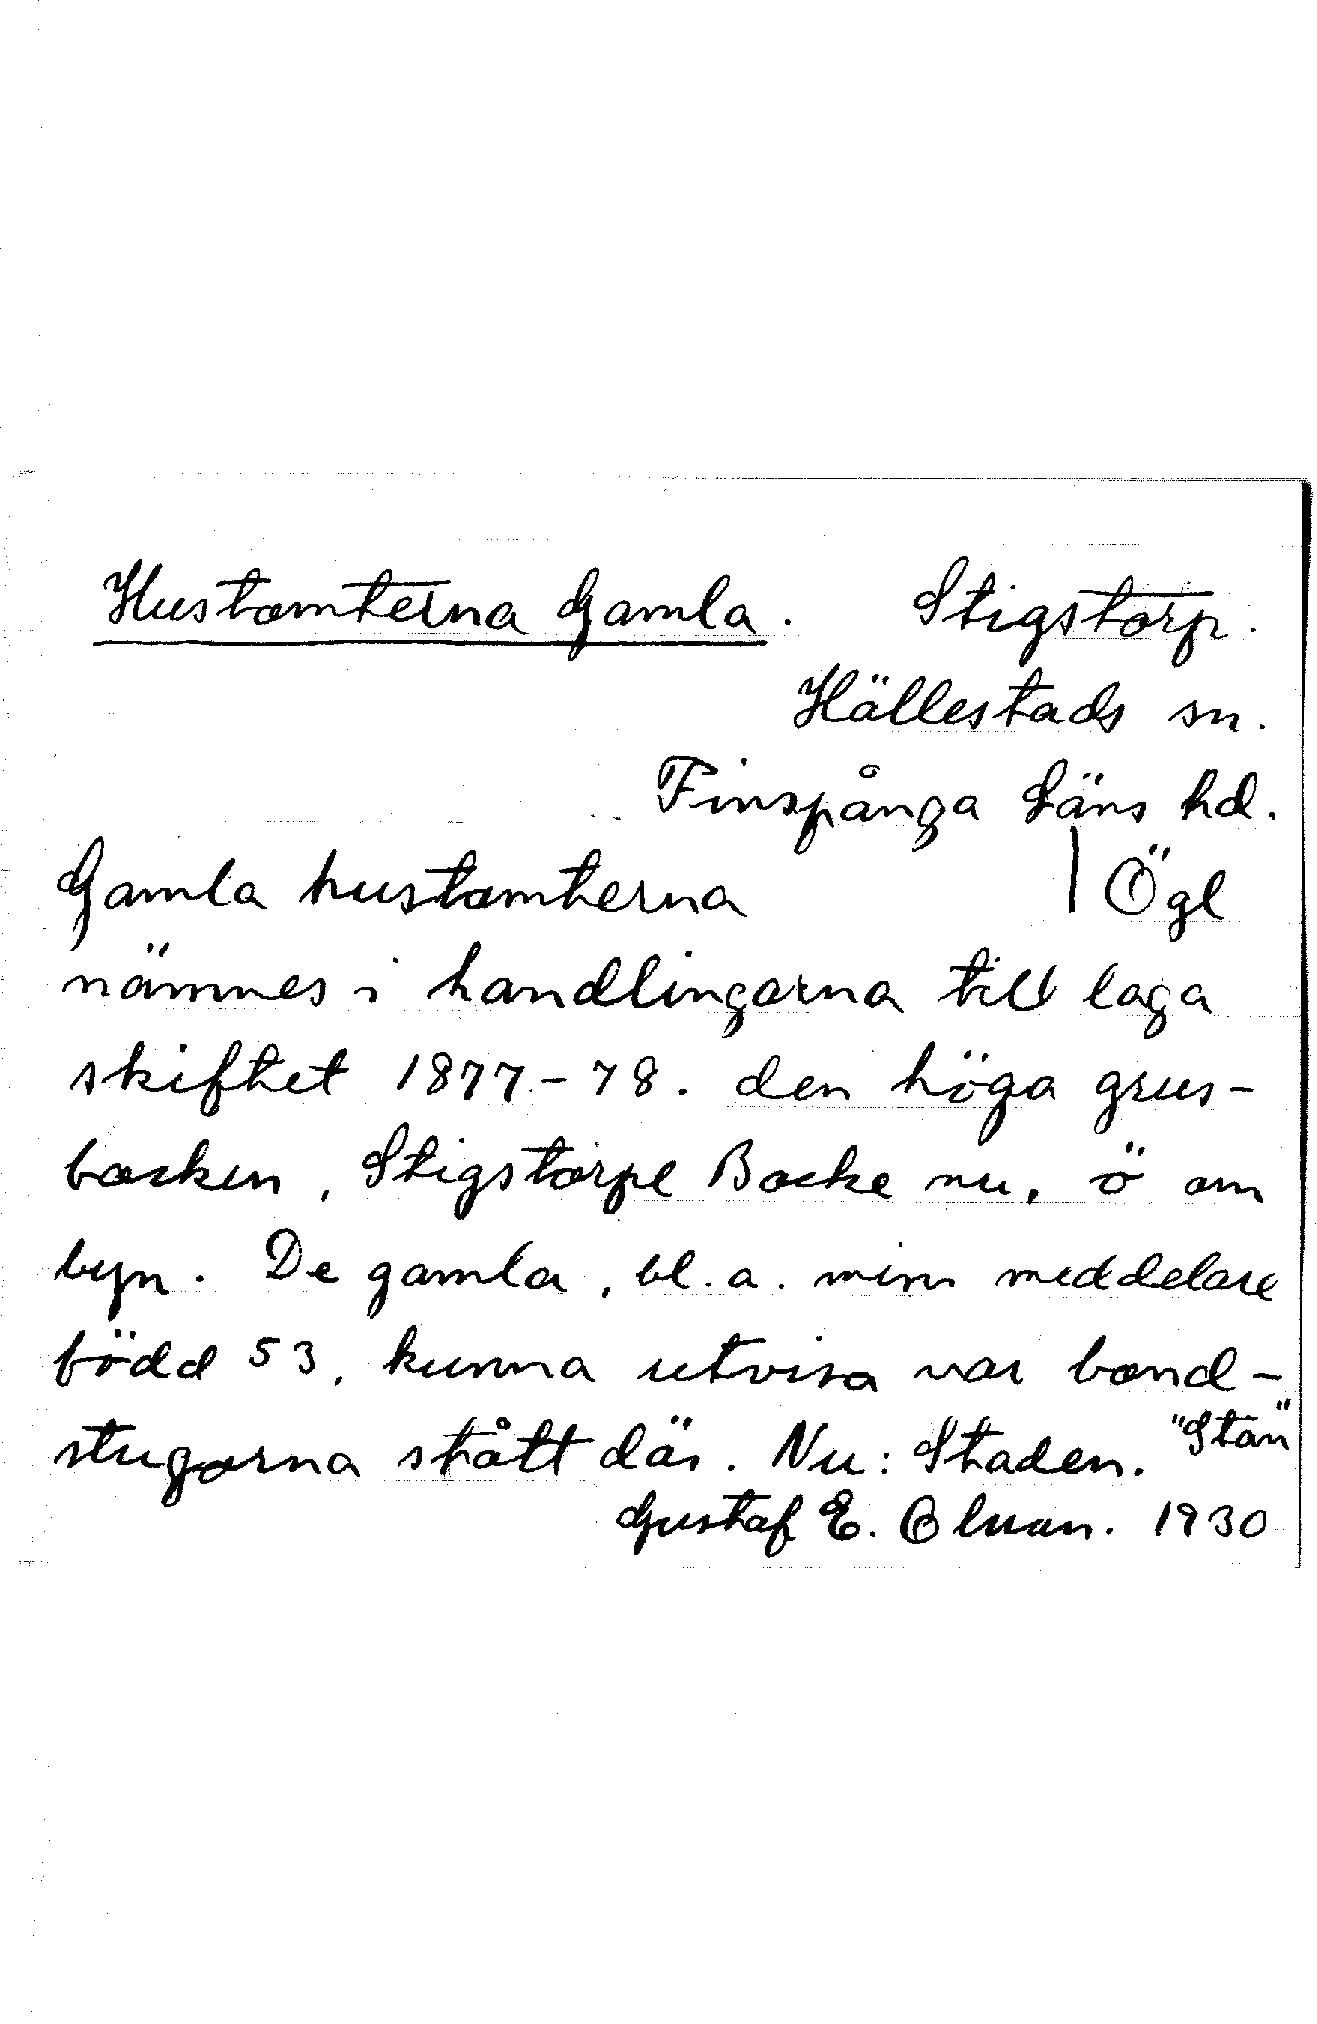 Hustomterna Gamla. Stigstorp.
Hällestads sn.
Finspånga Läns hd.
Gamla hustomterna | Ögl
nämnes i handlingarna till laga
skiftet 1877-78. den höga grus-
backen, Stigstorpe Backe nu, ö om
byn. De gamla, bl.a. min meddelare
född 53, kunna utvisa var bond-
stugorna stått där. Nu: Staden. "Stan"
Gustaf E. 1930